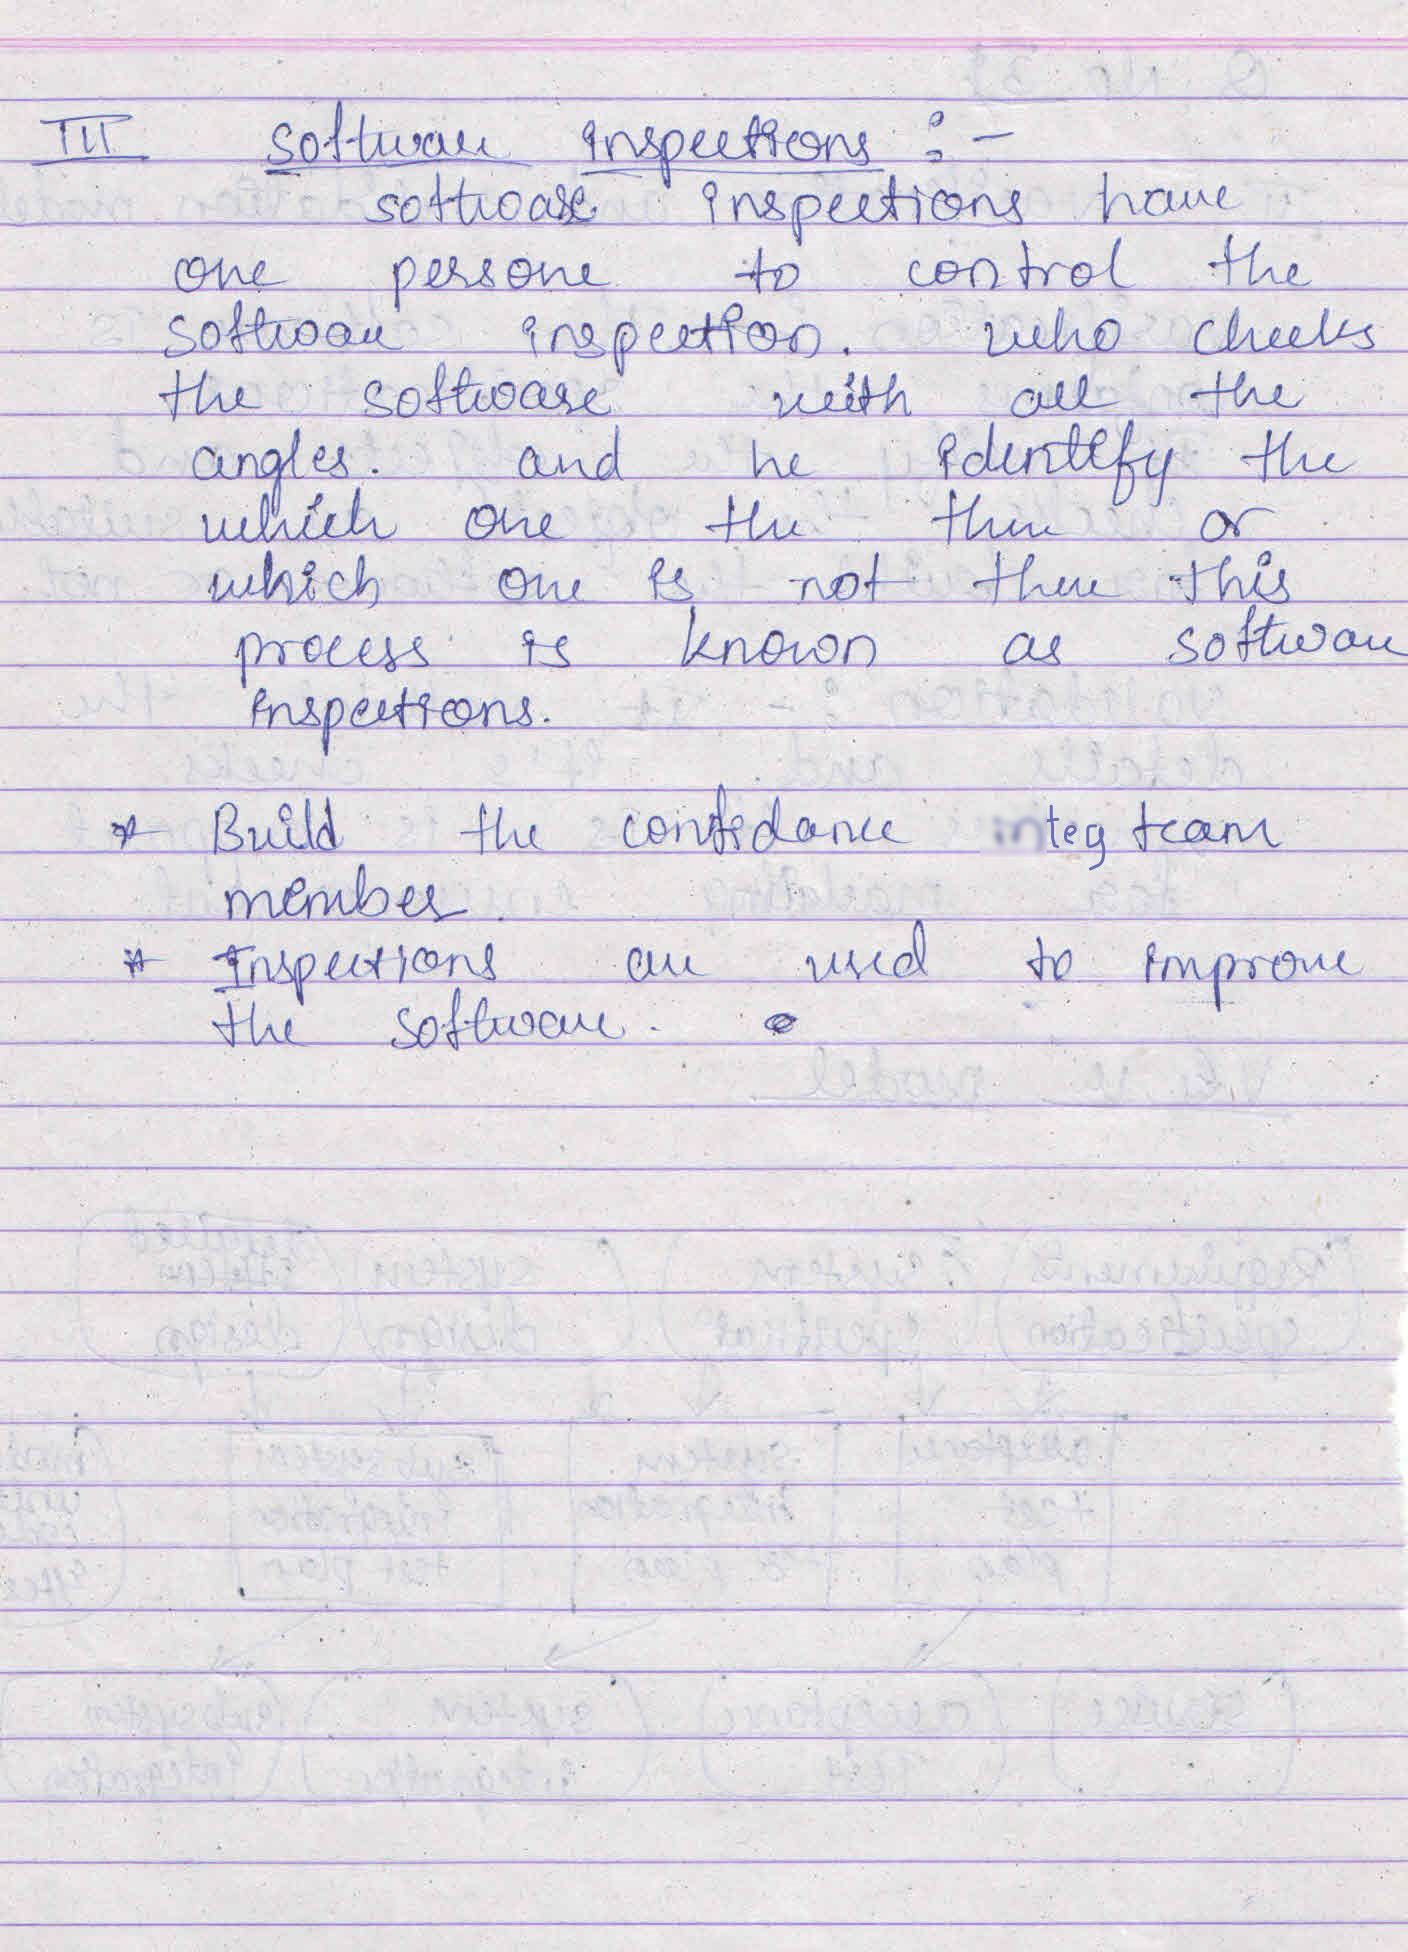 III Software inspections :-
software inspections have
one persone to control the
software inspection. who checks
the software with all the
angles. and he identify the
which one the there or
which one is not there this
process is known as software
inspections.
* Build the confidance integ team
member.
* Inspections are used to improve
the software.